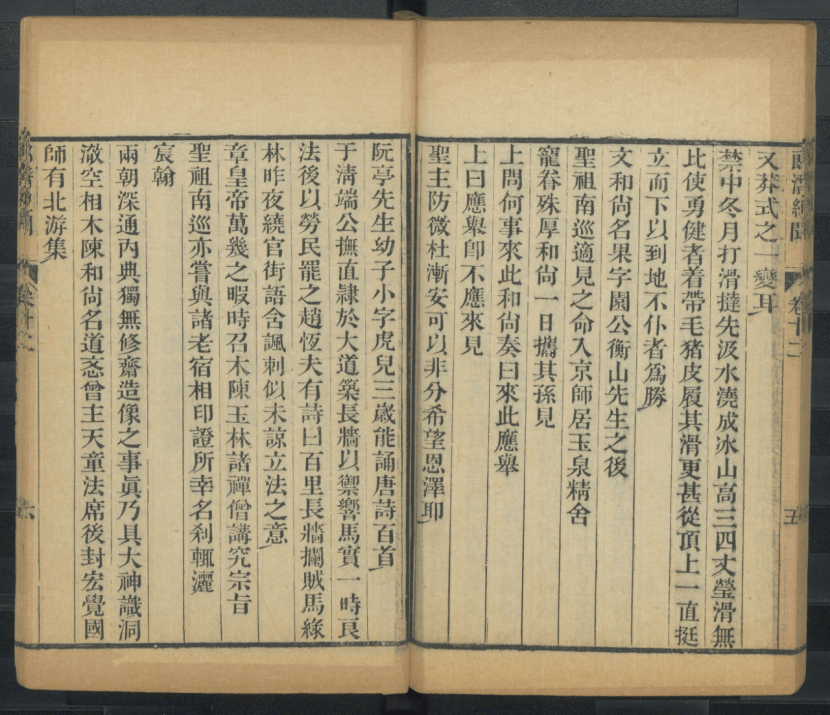 郎潛紀聞 卷十二 五
又莽式之一變耳
禁中冬月打滑撻先汲水澆成冰山高三四丈瑩滑無
比使勇健者着帶毛豬皮履其滑更甚從頂上一直挺
立而下以到地不仆者爲勝
文和尙名果字園公衡山先生之後
聖祖南巡適見之命入京師居玉泉精舍
寵眷殊厚和尙一日攜其孫見
上問何事來此和尙奏曰來此應舉
上曰應舉卽不應來見
聖主防微杜漸安可以非分希望恩澤耶
阮亭先生幼子小字虎兒三歲能誦唐詩百首
于淸端公撫直隸於大道築長牆以禦響馬實一時良
法後以勞民罷之趙恆夫有詩曰百里長牆攔賊馬綠
林昨夜繞官街語含諷刺似未諒立法之意
章皇帝萬幾之暇時召木陳玉林諸禪僧講究宗旨
聖祖南巡亦嘗與諸老宿相印證所幸名刹輒灑
宸翰
兩朝深通內典獨無修齋造像之事眞乃具大神識洞
澈空相木陳和尙名道忞曾主天童法席後封宏覺國
師有北游集
六